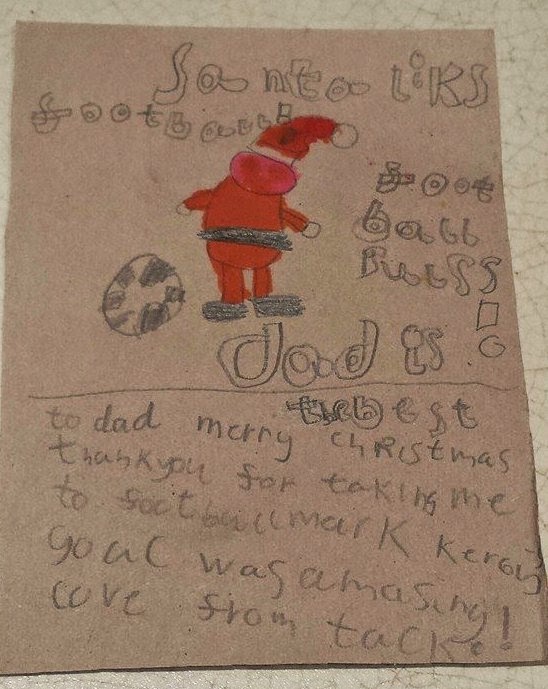 Santa liks
football
foot
ball
dad is !
the best
to dad merry christmas
thankyou for taking me
to football mark
goal was amasing!
love from